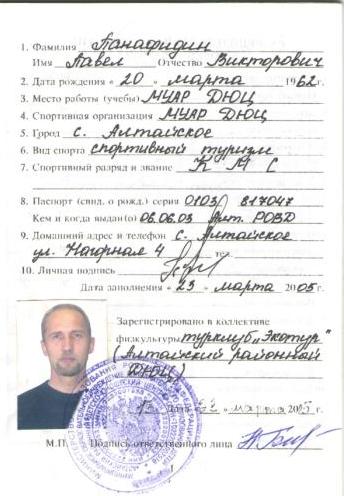 1. Фамилия Панафидин
Имя Павел Отчество Викторович
2. Дата рождения « 20 » марта 1962 г.
3. Место работы (учебы) МУАР ДЮЦ
4. Спортивная организация МУАР ДЮЦ
5. Город с. Алтайское
6. Вид спорта спортивный туризм
7. Спортивный разряд и звание К М С
8. Паспорт (свид. о рожд.) серия 0103 817047
Кем и когда выдан(о) 06.06.03 Алт. РОВД
9. Домашний адрес и телефон с. Алтайское
ул. Нагорная 4 тел.
10. Личная подпись
Дата заполнения « 23 » марта 2005 г.
Зарегистрировано в коллективе
физкультуры турклуб "Экотур"
(Алтайский районный
ДЮЦ)
марта
М.П. Подпись ответственного лица